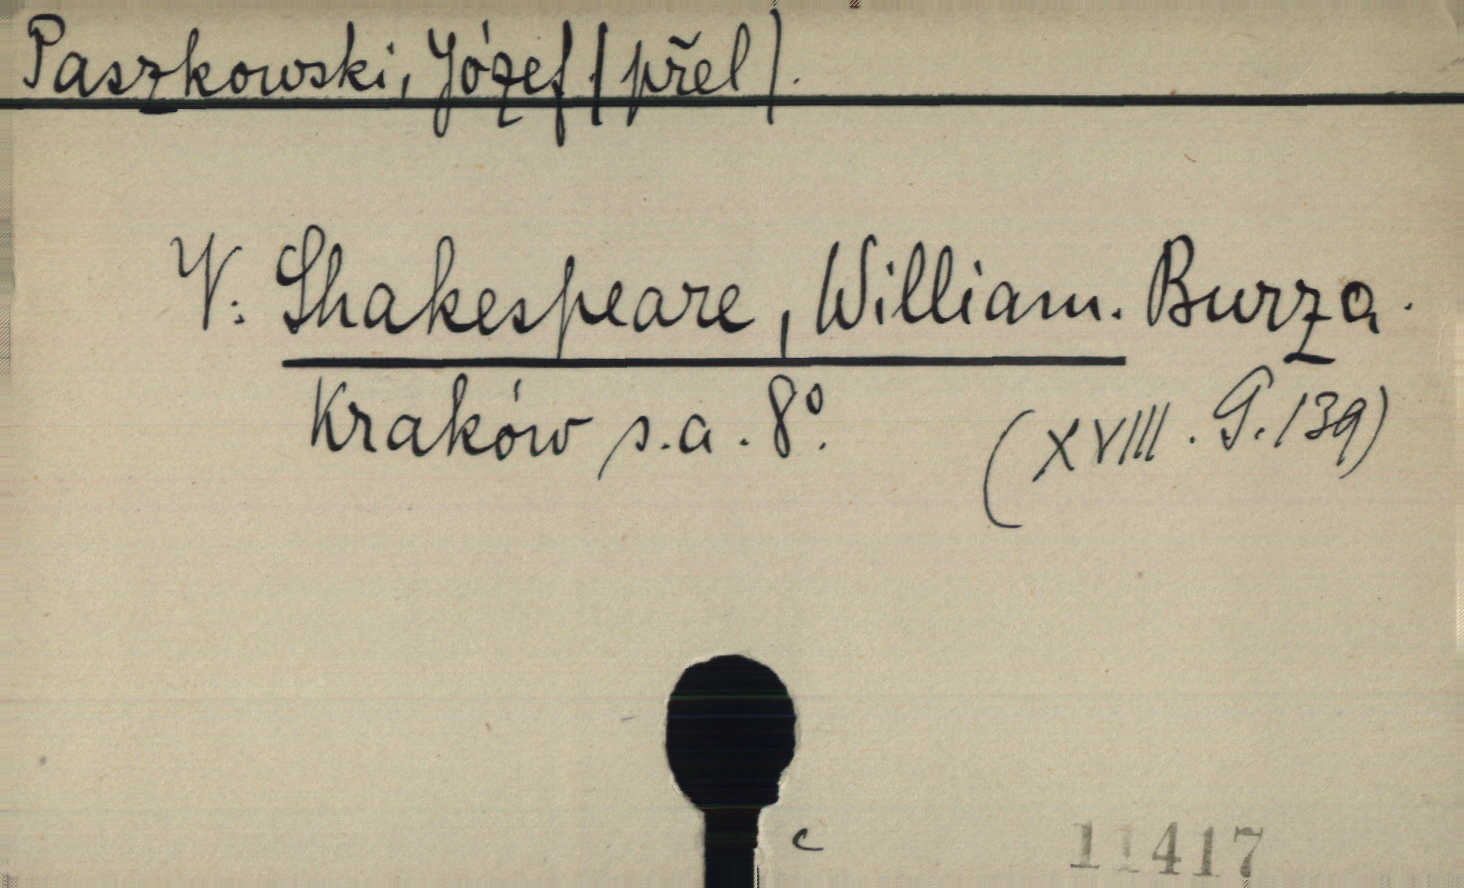 Paszkowski, Józef (přel).
V: Shakespeare, William. Burza.
Kraków s.a. 8°.
(XVIII. G. 139)
c
11417